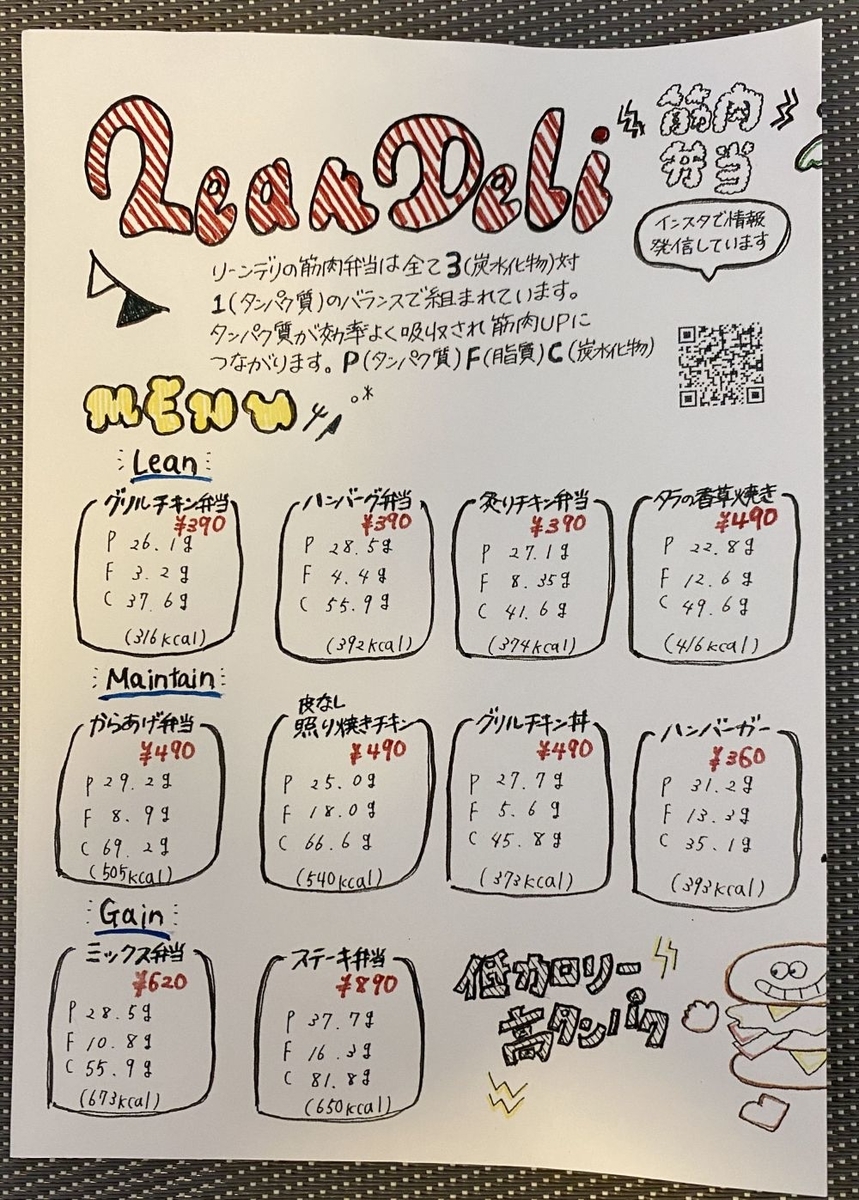 Lean Deli
筋肉
弁当
インスタで情報
発信しています
リーンデリの筋肉弁当は全て3(炭水化物)対
1(タンパク質)のバランスで組まれています。
タンパク質が効率よく吸収され筋肉UPに
つながります。P(タンパク質)F(脂質)C(炭水化物)
MENU
Lean
グリルチキン弁当
¥390
P 26.1g
F 3.2g
C 37.6g
(316kcal)
ハンバーグ弁当
¥390
P 28.5g
F 4.4g
C 55.9g
(392kcal)
炙りチキン弁当
¥390
P 27.1g
F 8.35g
C 41.6g
(374kcal)
タラの香草焼き
¥490
P 22.8g
F 12.6g
C 49.6g
(416kcal)
Maintain
からあげ弁当
¥490
P 29.2g
F 8.9g
C 69.2g
(505kcal)
皮なし
照り焼きチキン
¥490
P 25.0g
F 18.0g
C 66.6g
(540kcal)
グリルチキン丼
¥490
P 27.7g
F 5.6g
C 45.8g
(373kcal)
ハンバーガー
¥360
P 31.2g
F 13.3g
C 35.1g
(393kcal)
Gain
ミックス弁当
¥620
P 28.5g
F 10.8g
C 55.9g
(673kcal)
ステーキ弁当
¥890
P 37.7g
F 16.3g
C 81.8g
(650kcal)
低カロリー
高タンパク